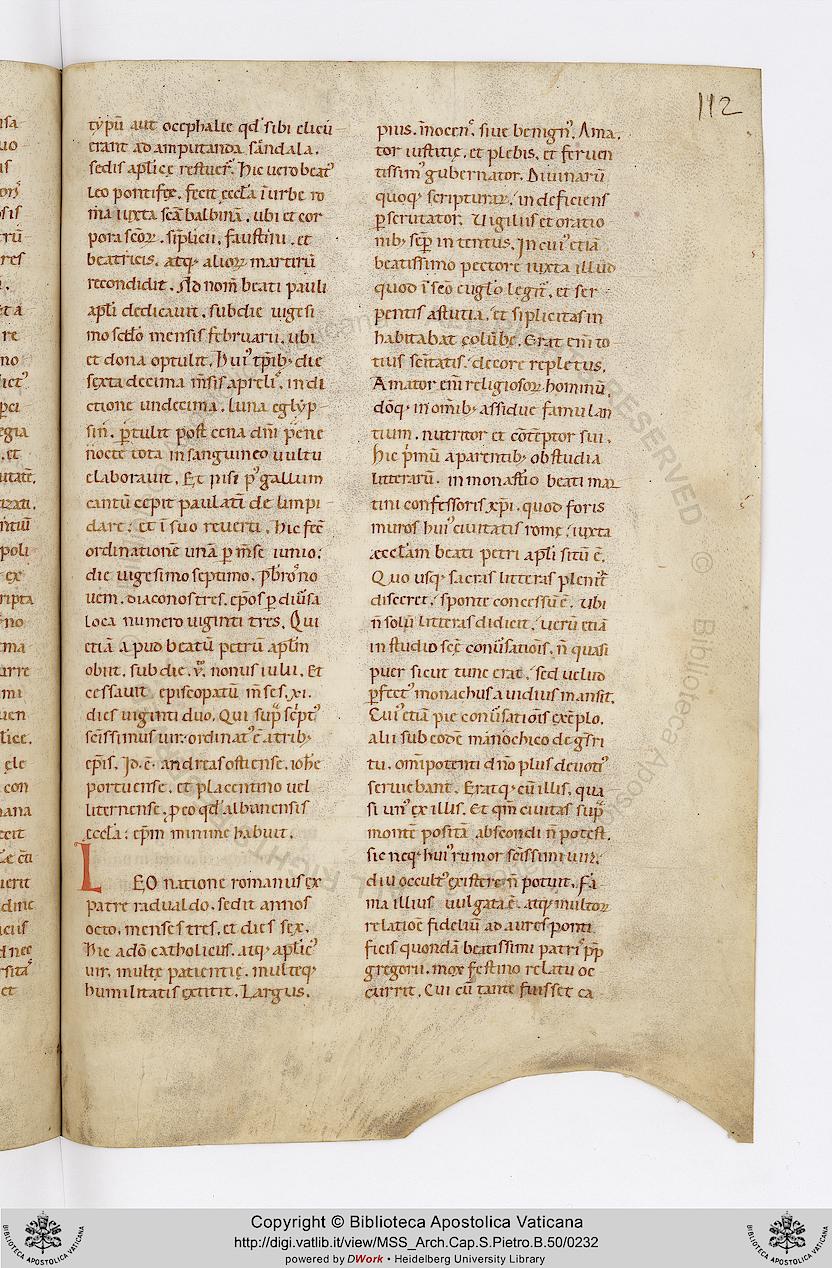 112
typū aut occephalie qd' sibi elicu
erant ad amputanda scandala.
sedis aplicę restuer̄. Hic uero beat'
leo pontifex. fecit eccl̄a ī urbe ro
ma iuxta sc̄ā balbinā. ubi et cor
pora sc̄oꝝ. siplicii. faustini. et
beatricis. atq; alioꝝ martirū
recondidit. Ad nom̄ beati pauli
apl̄i dedicauit. sub die uigesi
mo scdo mensis februarii. ubi
et dona optulit. Hui' tp̄ib; die
sexta decima m̄sis aprelis. indi
ctione undecima. luna eglyp
sin̄. p̄tulit post cena dn̄i pene
nocte tota in sanguineo uultu
elaborauit. Et nisi p' gallum
cantū cepit paulatī de limpi
dare. et ī suo reuerti. Hic fec̄
ordinationē unā p m̄se iunio.
die uigesimo septimo. pb̄ro' no
uem. diaconos tres. ep̄os p diu̅sa
loca numero uiginti tres. Qui
etiā apud beatū petrū apl̄m
obiit. sub die .v. nonus iulii. Et
cessauit episcopatū m̄ses .xi.
dies uiginti duo. Qui sup̄ sc̄pt'
sc̄issimus uir. ordinat' ē a trib;
ep̄is. Id. ē. andreas ostiense. ioh̄e
portuense. et placentino uel
liternense. p eo qd' albanensis
eccl̄a. ep̄m minime habuit.
LEO natione romanus ex
patre radualdo. sedit annos
octo. menses tres. et dies sex.
Hic adō catholicus. atq; aplic'
uir. multę patientię. multeq;
humilitatis extitit. Largus.
pius. īnocen'. siue benign'. Ama
tor iustitię. et plebis. et feruen
tissim' gubernator. Diuinarū
quoq; scripturaꝝ. in deficiens
p̱scrutator. Vigiliis et oratio
nib; sēp in tentus. In cui' etiā
beatissimo pectore iuxta illud
quod ī sc̄o euglo legit'. et ser
pentis astutia. et siplicitas in
habitabat colūbe. Erat em̄ to
tius sc̄itatis. decore repletus.
Amator em̄ religiosoꝝ hominū.
dōq; in om̄ib; assidue famulan
tium. nutritor et cōtēptor sui.
Hic p̄mū a parentib; ob studia
litterarū. in monast̄io beati mar
tini confessoris xp̄i. quod foris
muros hui' ciuitatis rome. iuxta
ęccl̄am beati petri apl̄i sitū ē.
Quo usq; sacras litteras plenit̄
disceret. sponte concessū ē. Ubi
n̄ solū litteras didicit. uerū etiā
in studio sc̄ę conu̅sationis. n̄ quasi
puer sicut tunc erat. sed uelud
p̱fect' monachus a uidius mansit.
Cui' etiā pie conu̅sationis exēplo.
alii sub eodē manochico degr̄i
tu. om̄ipotenti dn̄o plus deuoti'
seruiebant. Eratq; cū illis. qua
si un' ex illis. Et qm̄ ciuitas sup̄
montē positā abscondi n̄ potest.
sic neq; hui' rumor sc̄issimi uiri.
diu occult' existere n̄ potuit. Fa
ma illius uulgata ē. atq; multoꝝ
relatioē fideliū ad aures ponti
ficis quondā beatissimi patri' pp̄
gregorii. mox festino relatu oc
currit. Cui cū tante fuisset ca
Copyright © Biblioteca Apostolica Vaticana
http://digi.vatlib.it/view/MSS_Arch.Cap.S.Pietro.B.50/0232
powered by DWork • Heidelberg University Library